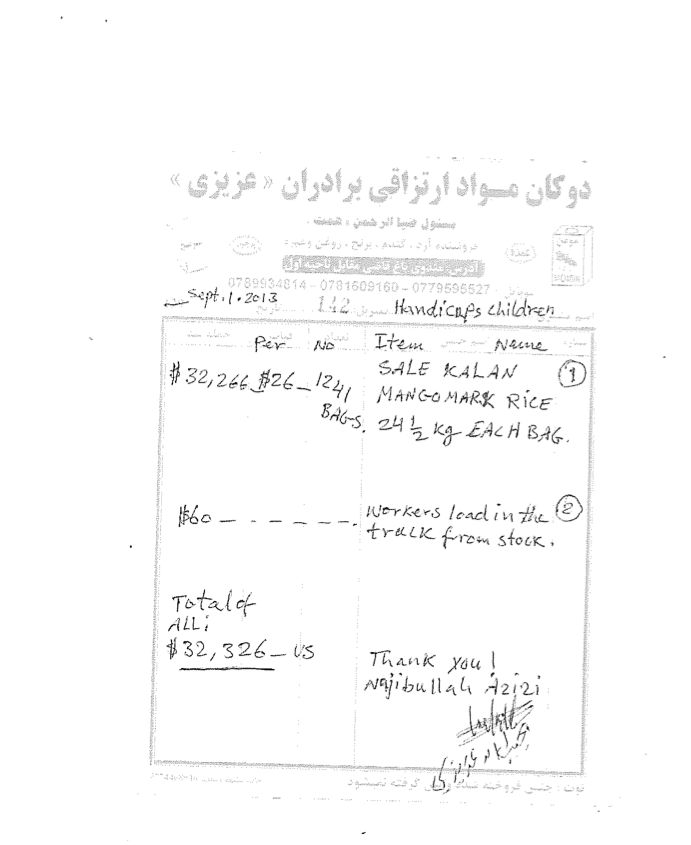 دوکان مــواد ارتزاقی برادران « عزیزی »
مسئول ضیا الرحمن ، همت
فروشنده آرد ، گندم ، برنج ، روغن وغیره
آدرس: مندوی باغ قاضی مقابل ناحیه اول
0789934814 - 0781609160 - 0779596527
Sept. 1. 2013 142 Handicaps children
Per No Item Name
$32,266 $26 - 1241 BAGS. SALE KALAN ①
MANGOMARK RICE
24 ½ kg EACH BAG.
$60 - - - - - -. workers load in the ②
truck from stock.
Total of
ALL:
$32,326 - US
Thank you!
Najibullah Azizi
نوت : جنس فروخته شده واپس گرفته نمیشود